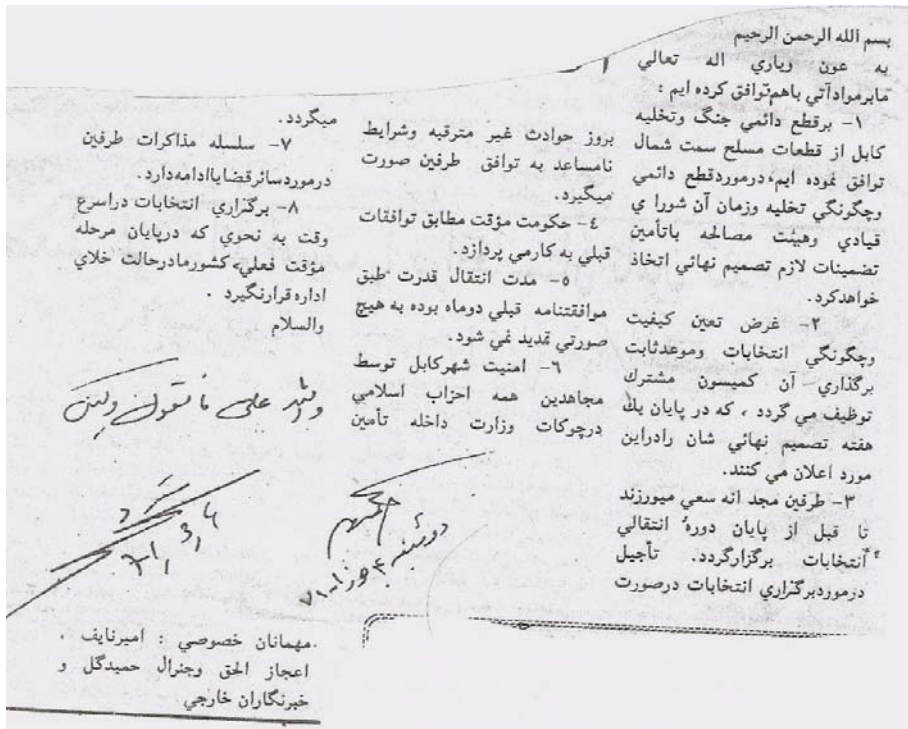 بسم الله الرحمن الرحيم
به عون وياري اله تعالي
مابرموادآتي باهم توافق كرده ايم :
۱- برقطع دائمي جنگ وتخليه
كابل از قطعات مسلح سمت شمال
توافق نموده ايم، درموردقطع دائمي
وچگونگي تخليه وزمان آن شورا ي
قيادي وهيئت مصالحه باتأمين
تضمينات لازم تصميم نهائي اتخاذ
خواهدكرد.
۲- غرض تعين كيفيت
وچگونگي انتخابات وموعدثابت
برگذاري آن كميسون مشترك
توظيف مي گردد ، كه در پايان يك
هفته تصميم نهائي شان رادراين
مورد اعلان مي كنند.
۳- طرفين مجد انه سعي ميورزند
تا قبل از پايان دورۀ انتقالي
انتخابات برگزارگردد. تأجيل
درموردبرگزاري انتخابات درصورت
بروز حوادث غير مترقبه وشرايط
نامساعد به توافق طرفين صورت
ميگيرد.
٤- حكومت مؤقت مطابق توافقات
قبلي به كارمي پردازد.
٥- مدت انتقال قدرت طبق
موافقتنامه قبلي دوماه بوده به هيچ
صورتي تمديد نمي شود.
٦- امنيت شهركابل توسط
مجاهدين همه احزاب اسلامي
درچوكات وزارت داخله تأمين
ميگردد.
۷- سلسله مذاكرات طرفين
درموردسائرقضاياادامه دارد.
۸- برگزاري انتخابات دراسرع
وقت به نحوي كه درپايان مرحله
مؤقت فعلي، كشورمادرحالت خلاي
اداره قرارنگيرد .
والسلام
والله علی ما نقول وكيل
دوشنبه ۴ جوزا ۷۱
مهمانان خصوصي : اميرنايف ،
اعجاز الحق وجنرال حميدگل و
خبرنگاران خارجي